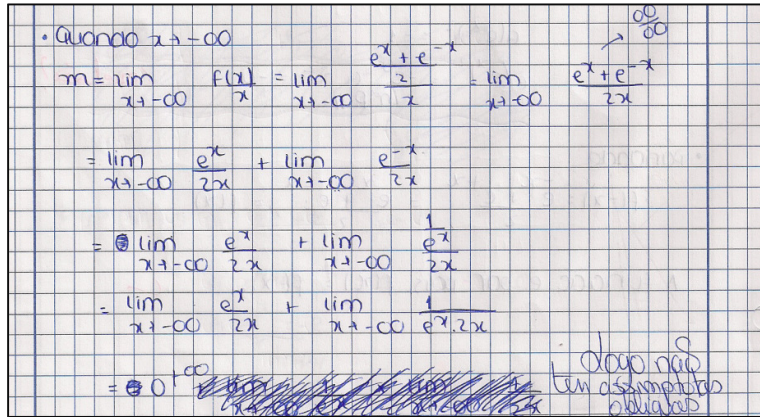 • Quando x→-∞
∞/∞
m = lim x→-∞ f(x)/x = lim x→-∞ ((e^x + e^-x)/2)/x = lim x→-∞ (e^x + e^-x)/2x
= lim x→-∞ e^x/2x + lim x→-∞ e^-x/2x
= lim x→-∞ e^x/2x + lim x→-∞ (1/e^x)/2x
= lim x→-∞ e^x/2x + lim x→-∞ 1/(e^x.2x)
= 0 + ∞
Logo não
tem assimptotas
oblíquas